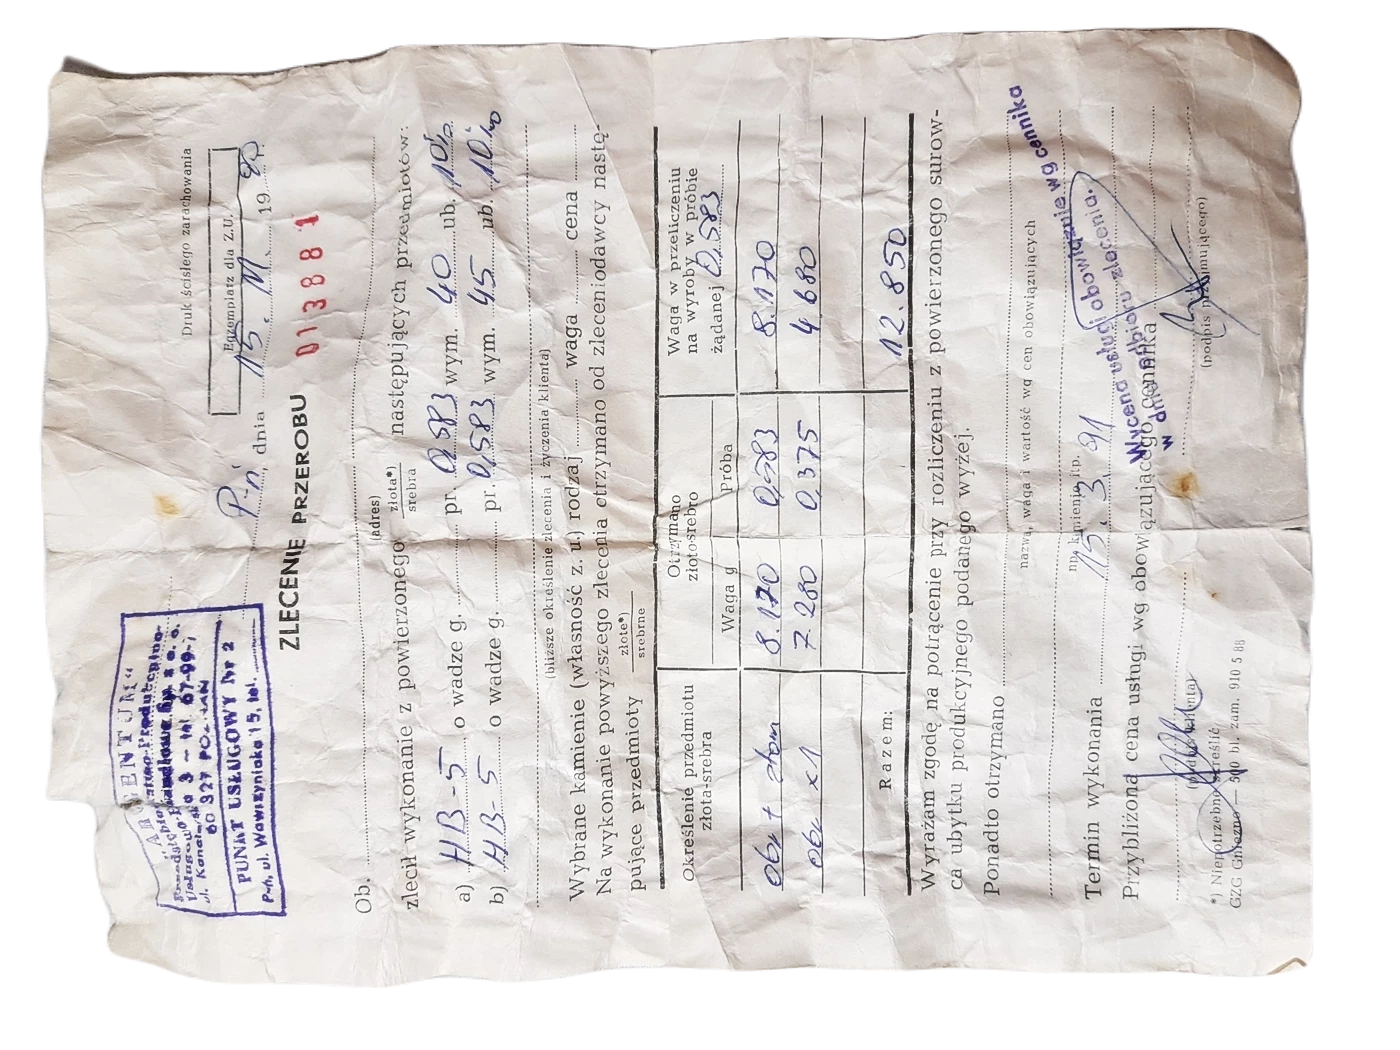 „ARGENTUM"
Usługowo-Handlowe Sp. z o. o.
60 327 POZNAŃ
PUNKT USŁUGOWY Nr 2
P-ń, ul. Wawrzyniaka 15, tel.
Druk ścisłego zarachowania
Egzemplarz dla Z.U.
P-ń, dnia 15. 19 r.
ZLECENIE PRZEROBU 013881
Ob.
(adres)
zlecił wykonanie z powierzonego złota*) srebra następujących przedmiotów:
a) HB-5 o wadze g. pr. 0,583 wym. 40 ub. 10%
b) HB-5 o wadze g. pr. 0,583 wym. 45 ub. 10%
(bliższe określenie zlecenia i życzenia klienta)
Wybrane kamienie (własność z. u.) rodzaj waga cena
Na wykonanie powyższego zlecenia otrzymano od zleceniodawcy nastę
pujące przedmioty złote*) srebrne
Określenie przedmiotu złota-srebra
Otrzymano złoto-srebro
Waga g
Próba
Waga w przeliczeniu na wyroby w próbie żądanej 0,583
obr + złom 8.170 0,583 8.170
obr x 1 7.280 0,375 4.680
Razem: 12.850
Wyrażam zgodę na potrącenie przy rozliczeniu z powierzonego surow-
ca ubytku produkcyjnego podanego wyżej.
Ponadto otrzymano
nazwa, waga i wartość wg cen obowiązujących
np. kamienie itp.
Termin wykonania 15. 3. 91
Wycena usługi obowiązuje wg cennika
w dniu odbioru zlecenia.
Przybliżona cena usługi wg obowiązującego cennika
(podpis klienta)
(podpis przyjmującego)
*) Niepotrzebne skreślić
GZG Gniezno — 500 bl. zam. 910 5 88